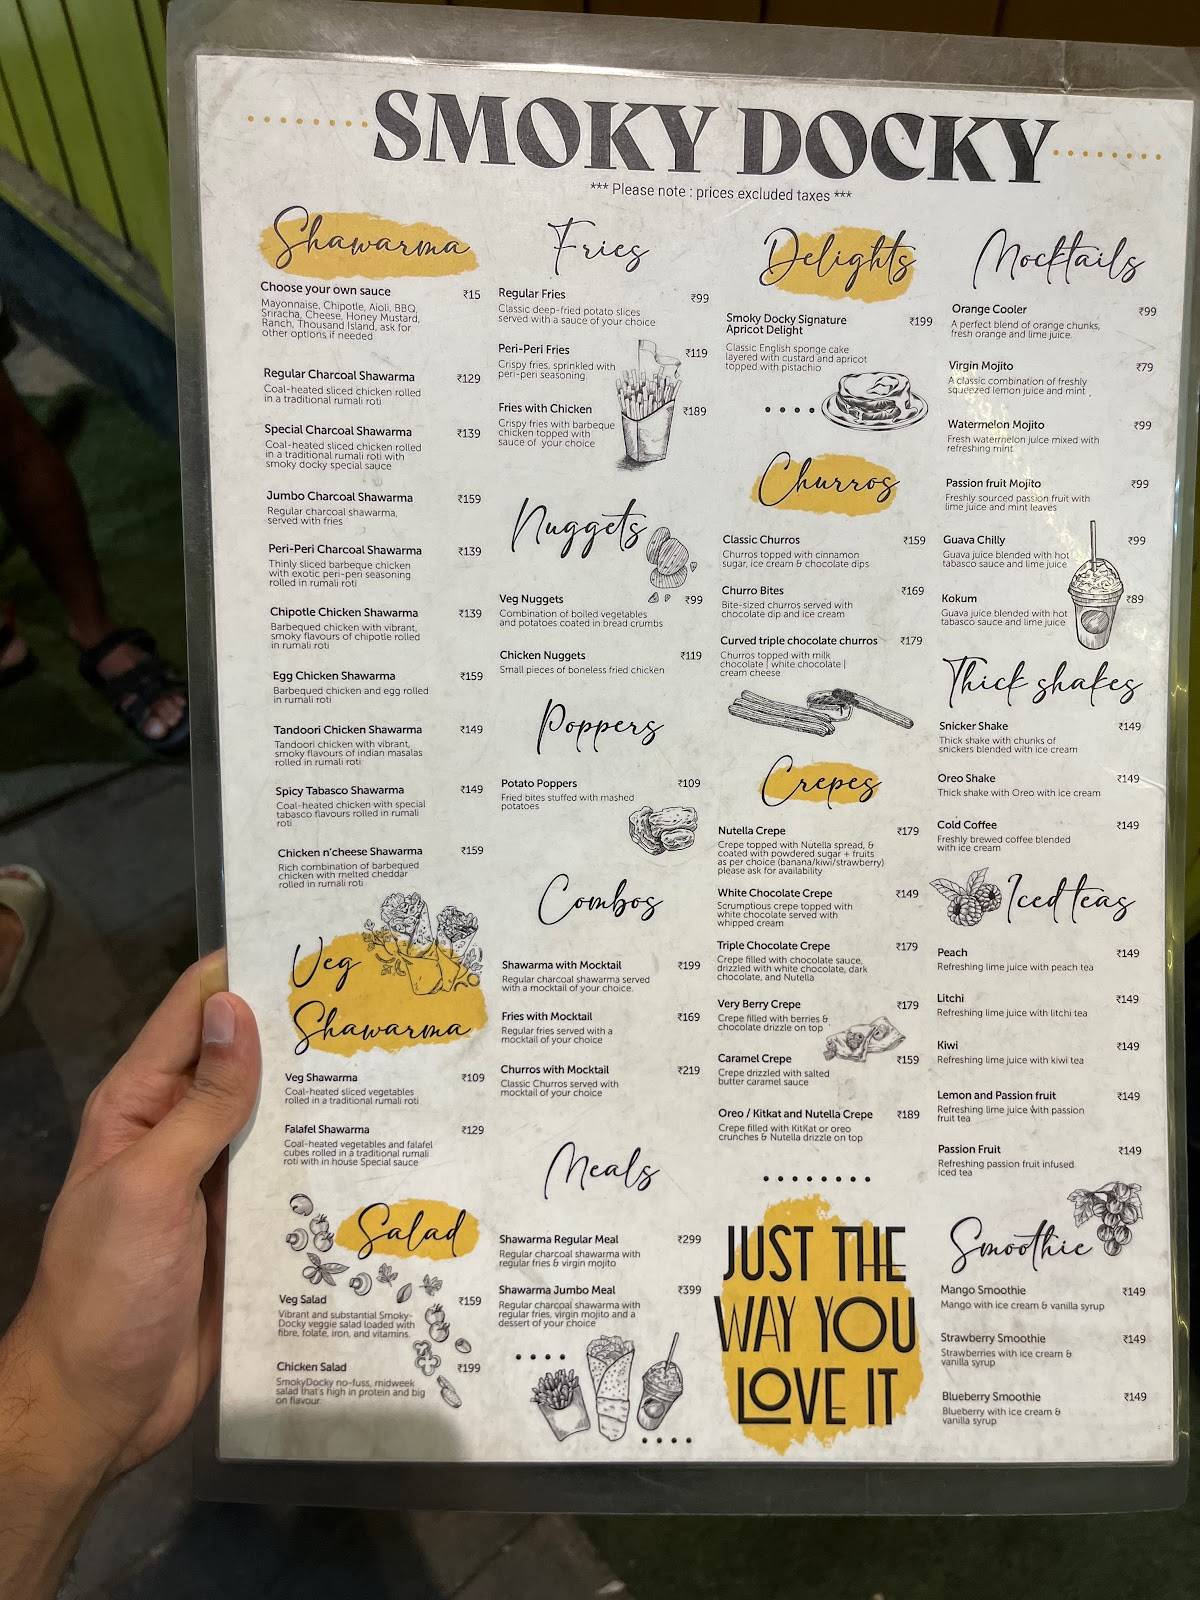 SMOKY DOCKY
*** Please note : prices excluded taxes ***
Shawarma
Choose your own sauce ₹15
Mayonnaise, Chipotle, Aioli, BBQ,
Sriracha, Cheese, Honey Mustard,
Ranch, Thousand Island, ask for
other options if needed
Regular Charcoal Shawarma ₹129
Coal-heated sliced chicken rolled
in a traditional rumali roti
Special Charcoal Shawarma ₹139
Coal-heated sliced chicken rolled
in a traditional rumali roti with
smoky docky special sauce
Jumbo Charcoal Shawarma ₹159
Regular charcoal shawarma,
served with fries
Peri-Peri Charcoal Shawarma ₹139
Thinly sliced barbeque chicken
with exotic peri-peri seasoning
rolled in rumali roti
Chipotle Chicken Shawarma ₹139
Barbequed chicken with vibrant,
smoky flavours of chipotle rolled
in rumali roti
Egg Chicken Shawarma ₹159
Barbequed chicken and egg rolled
in rumali roti
Tandoori Chicken Shawarma ₹149
Tandoori chicken with vibrant,
smoky flavours of indian masalas
rolled in rumali roti
Spicy Tabasco Shawarma ₹149
Coal-heated chicken with special
tabasco flavours rolled in rumali
roti
Chicken n'cheese Shawarma ₹159
Rich combination of barbequed
chicken with melted cheddar
rolled in rumali roti
Veg
Shawarma
Veg Shawarma ₹109
Coal-heated sliced vegetables
rolled in a traditional rumali roti
Falafel Shawarma ₹129
Coal-heated vegetables and falafel
cubes rolled in a traditional rumali
roti with in house Special sauce
Salad
Veg Salad ₹159
Vibrant and substantial Smoky-
Docky veggie salad loaded with
fibre, folate, iron, and vitamins.
Chicken Salad ₹199
SmokyDocky no-fuss, midweek
salad that's high in protein and big
on flavour
Fries
Regular Fries ₹99
Classic deep-fried potato slices
served with a sauce of your choice
Peri-Peri Fries ₹119
Crispy fries, sprinkled with
peri-peri seasoning
Fries with Chicken ₹189
Crispy fries with barbeque
chicken topped with
sauce of your choice
Nuggets
Veg Nuggets ₹99
Combination of boiled vegetables
and potatoes coated in bread crumbs
Chicken Nuggets ₹119
Small pieces of boneless fried chicken
Poppers
Potato Poppers ₹109
Fried bites stuffed with mashed
potatoes
Combos
Shawarma with Mocktail ₹199
Regular charcoal shawarma served
with a mocktail of your choice.
Fries with Mocktail ₹169
Regular fries served with a
mocktail of your choice
Churros with Mocktail ₹219
Classic Churros served with
mocktail of your choice
Meals
Shawarma Regular Meal ₹299
Regular charcoal shawarma with
regular fries & virgin mojito
Shawarma Jumbo Meal ₹399
Regular charcoal shawarma with
regular fries, virgin mojito and a
dessert of your choice
Delights
Smoky Docky Signature ₹199
Apricot Delight
Classic English sponge cake
layered with custard and apricot
topped with pistachio
Churros
Classic Churros ₹159
Churros topped with cinnamon
sugar, ice cream & chocolate dips
Churro Bites ₹169
Bite-sized churros served with
chocolate dip and ice cream
Curved triple chocolate churros ₹179
Churros topped with milk
chocolate | white chocolate |
cream cheese
Crepes
Nutella Crepe ₹179
Crepe topped with Nutella spread, &
coated with powdered sugar + fruits
as per choice (banana/kiwi/strawberry)
please ask for availability
White Chocolate Crepe ₹149
Scrumptious crepe topped with
white chocolate served with
whipped cream
Triple Chocolate Crepe ₹179
Crepe filled with chocolate sauce,
drizzled with white chocolate, dark
chocolate, and Nutella
Very Berry Crepe ₹179
Crepe filled with berries &
chocolate drizzle on top
Caramel Crepe ₹159
Crepe drizzled with salted
butter caramel sauce
Oreo / Kitkat and Nutella Crepe ₹189
Crepe filled with KitKat or oreo
crunches & Nutella drizzle on top
JUST THE
WAY YOU
LOVE IT
Mocktails
Orange Cooler ₹99
A perfect blend of orange chunks,
fresh orange and lime juice.
Virgin Mojito ₹79
A classic combination of freshly
squeezed lemon juice and mint
Watermelon Mojito ₹99
Fresh watermelon juice mixed with
refreshing mint
Passion fruit Mojito ₹99
Freshly sourced passion fruit with
lime juice and mint leaves
Guava Chilly ₹99
Guava juice blended with hot
tabasco sauce and lime juice
Kokum ₹89
Guava juice blended with hot
tabasco sauce and lime juice
Thick shakes
Snicker Shake ₹149
Thick shake with chunks of
snickers blended with ice cream
Oreo Shake ₹149
Thick shake with Oreo with ice cream
Cold Coffee ₹149
Freshly brewed coffee blended
with ice cream
Iced teas
Peach ₹149
Refreshing lime juice with peach tea
Litchi ₹149
Refreshing lime juice with litchi tea
Kiwi ₹149
Refreshing lime juice with kiwi tea
Lemon and Passion fruit ₹149
Refreshing lime juice with passion
fruit tea
Passion Fruit ₹149
Refreshing passion fruit infused
iced tea
Smoothie
Mango Smoothie ₹149
Mango with ice cream & vanilla syrup
Strawberry Smoothie ₹149
Strawberries with ice cream &
vanilla syrup
Blueberry Smoothie ₹149
Blueberry with ice cream &
vanilla syrup